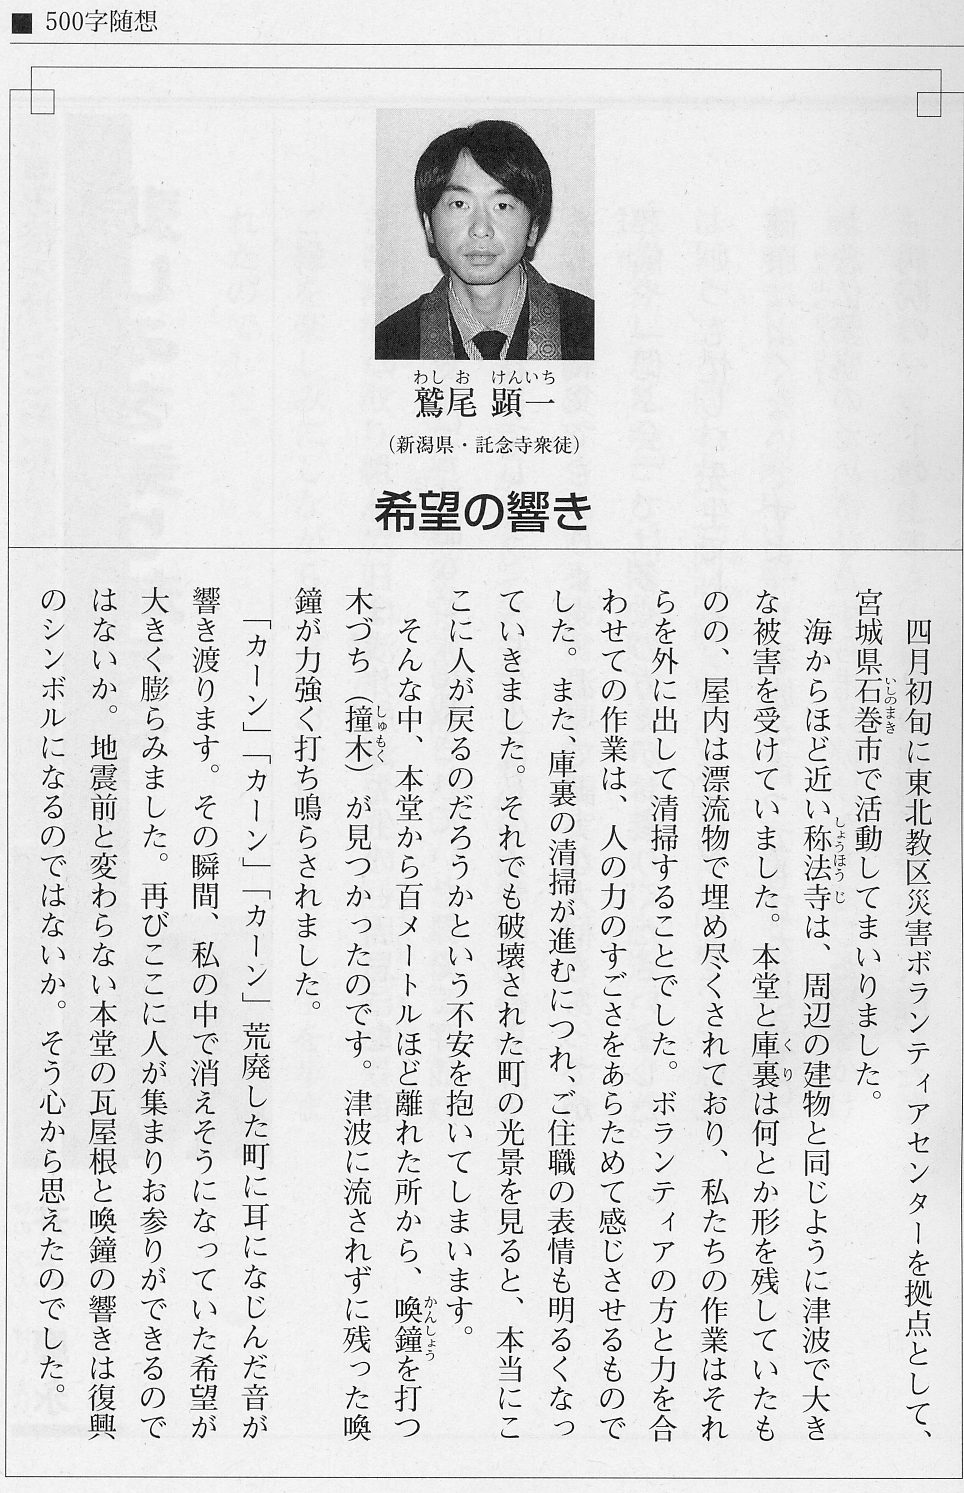 ■ 500字随想
わし お けんいち
鷲尾 顕一
(新潟県・託念寺衆徒)
希望の響き
四月初旬に東北教区災害ボランティアセンターを拠点として、
宮城県石巻市で活動してまいりました。
いしのまき
海からほど近い称法寺は、周辺の建物と同じように津波で大き
しょうほう じ
な被害を受けていました。本堂と庫裏は何とか形を残していたも
くり
のの、屋内は漂流物で埋め尽くされており、私たちの作業はそれ
らを外に出して清掃することでした。ボランティアの方と力を合
わせての作業は、人の力のすごさをあらためて感じさせるもので
した。また、庫裏の清掃が進むにつれ、ご住職の表情も明るくなっ
ていきました。それでも破壊された町の光景を見ると、本当にこ
こに人が戻るのだろうかという不安を抱いてしまいます。
そんな中、本堂から百メートルほど離れた所から、喚鐘を打つ
かんしょう
木づち（撞木）が見つかったのです。津波に流されずに残った喚
しゅもく
鐘が力強く打ち鳴らされました。
「カーン」「カーン」「カーン」荒廃した町に耳になじんだ音が
響き渡ります。その瞬間、私の中で消えそうになっていた希望が
大きく膨らみました。再びここに人が集まりお参りができるので
はないか。地震前と変わらない本堂の瓦屋根と喚鐘の響きは復興
のシンボルになるのではないか。そう心から思えたのでした。